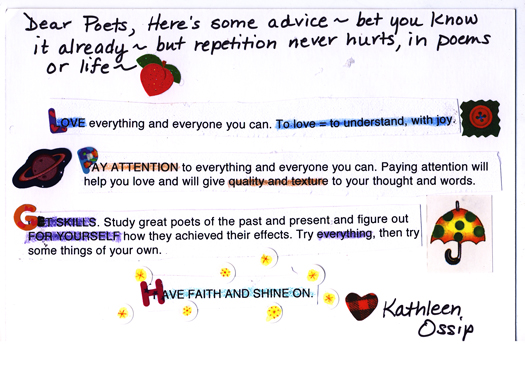 Dear Poets, Here's some advice ~ bet you know
it already ~ but repetition never hurts, in poems
or life ~
LOVE everything and everyone you can. To love = to understand, with joy.
PAY ATTENTION to everything and everyone you can. Paying attention will
help you love and will give quality and texture to your thought and words.
GET SKILLS. Study great poets of the past and present and figure out
FOR YOURSELF how they achieved their effects. Try everything, then try
some things of your own.
HAVE FAITH AND SHINE ON.
Kathleen
Ossip